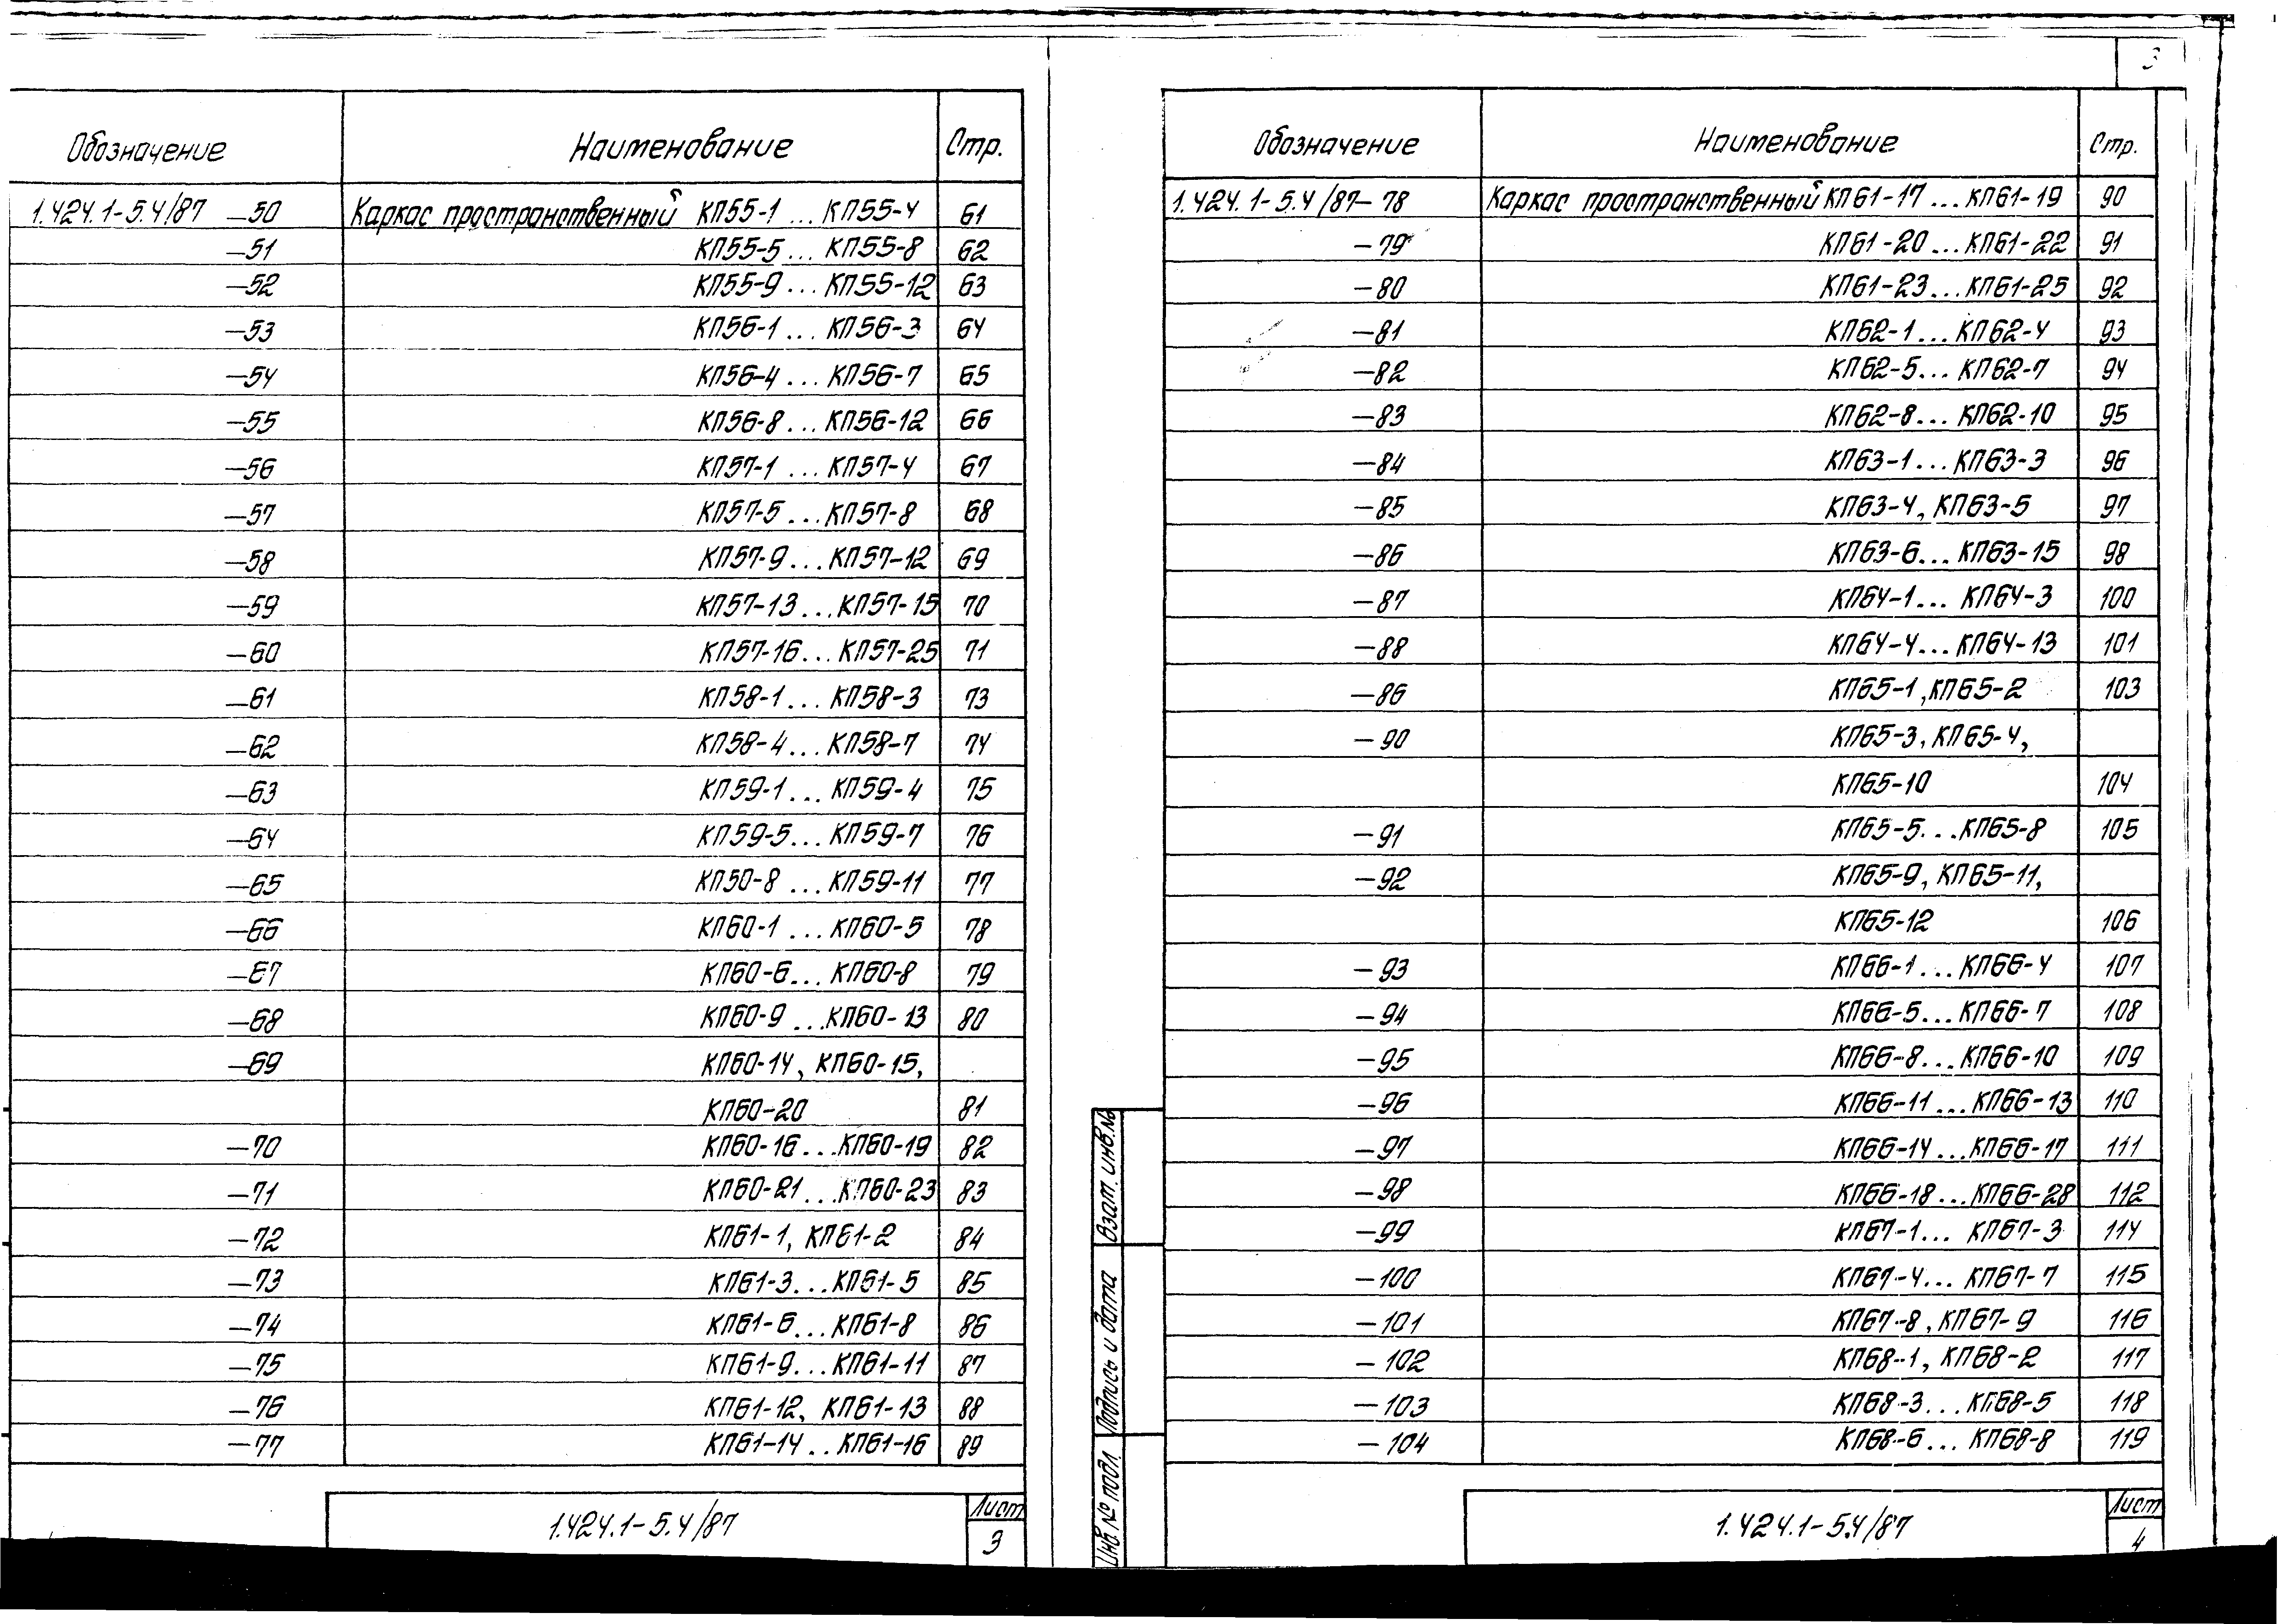 3
Обозначение Наименование Стр.
1.424.1-5.4/87 -50 Каркас пространственный КП55-1 ... КП55-4 61
-51 КП55-5 ... КП55-8 62
-52 КП55-9 ... КП55-12 63
-53 КП56-1 ... КП56-3 64
-54 КП56-4 ... КП56-7 65
-55 КП56-8 ... КП56-12 66
-56 КП57-1 ... КП57-4 67
-57 КП57-5 ... КП57-8 68
-58 КП57-9 ... КП57-12 69
-59 КП57-13 ... КП57-15 70
-60 КП57-16 ... КП57-25 71
-61 КП58-1 ... КП58-3 73
-62 КП58-4 ... КП58-7 74
-63 КП59-1 ... КП59-4 75
-64 КП59-5 ... КП59-7 76
-65 КП50-8 ... КП59-11 77
-66 КП60-1 ... КП60-5 78
-67 КП60-6 ... КП60-8 79
-68 КП60-9 ... КП60-13 80
-69 КП60-14, КП60-15,
КП60-20 81
-70 КП60-16 ... КП60-19 82
-71 КП60-21 ... КП60-23 83
-72 КП61-1, КП61-2 84
-73 КП61-3 ... КП61-5 85
-74 КП61-6 ... КП61-8 86
-75 КП61-9 ... КП61-11 87
-76 КП61-12, КП61-13 88
-77 КП61-14 .. КП61-16 89
1.424.1-5.4/87 Лист
3
Обозначение Наименование Стр.
1.424.1-5.4/87-78 Каркас пространственный КП61-17 ... КП61-19 90
-79 КП61-20 ... КП61-22 91
-80 КП61-23 ... КП61-25 92
-81 КП62-1 ... КП62-4 93
-82 КП62-5 ... КП62-7 94
-83 КП62-8 ... КП62-10 95
-84 КП63-1 ... КП63-3 96
-85 КП63-4, КП63-5 97
-86 КП63-6 ... КП63-15 98
-87 КП64-1 ... КП64-3 100
-88 КП64-4 ... КП64-13 101
-86 КП65-1, КП65-2 103
-90 КП65-3, КП65-4,
КП65-10 104
-91 КП65-5 ... КП65-8 105
-92 КП65-9, КП65-11,
КП65-12 106
-93 КП66-1 ... КП66-4 107
-94 КП66-5 ... КП66-7 108
-95 КП66-8 ... КП66-10 109
-96 КП66-11 ... КП66-13 110
-97 КП66-14 ... КП66-17 111
-98 КП66-18 ... КП66-28 112
-99 КП67-1 ... КП67-3 114
-100 КП67-4 ... КП67-7 115
-101 КП67-8, КП67-9 116
-102 КП68-1, КП68-2 117
-103 КП68-3 ... КП68-5 118
-104 КП68-6 ... КП68-8 119
Взам. инв.№
Подпись и дата
Инв. № подл.
1.424.1-5.4/87 Лист
4